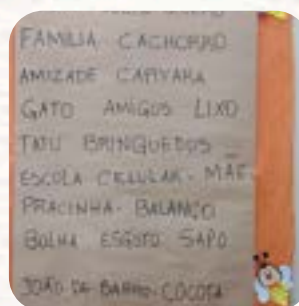 FAMILIA CACHORRO
AMIZADE CAPIVARA
GATO AMIGOS LIXO
TATU BRINQUEDOS
ESCOLA CELULAR. MÃE
PRACINHA. BALANÇO
BOLHA ESGOTO SAPO
JOÃO DE BARRO. COCOTA